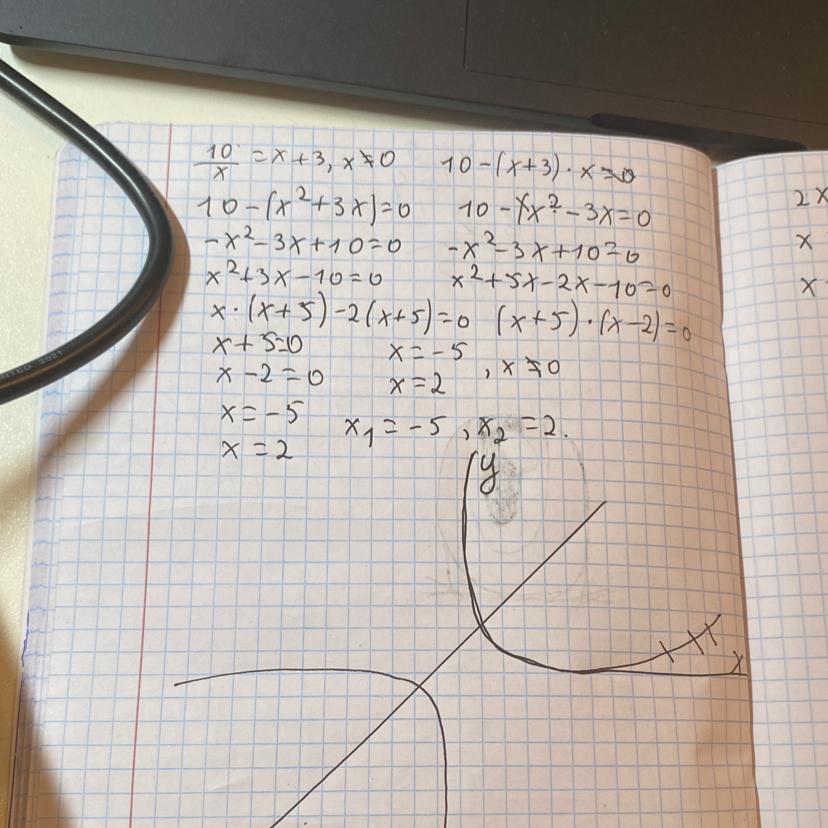 10/x = x + 3, x ≠ 0    10 - (x+3) · x = 0
10 - (x² + 3x) = 0    10 - x² - 3x = 0
-x² - 3x + 10 = 0    -x² - 3x + 10 = 0
x² + 3x - 10 = 0    x² + 5x - 2x - 10 = 0
x · (x + 5) - 2(x + 5) = 0    (x + 5) · (x - 2) = 0
x + 5 = 0    x = -5
x - 2 = 0    x = 2    , x ≠ 0
x = -5    x₁ = -5, x₂ = 2.
x = 2
y
x
2x
x
x